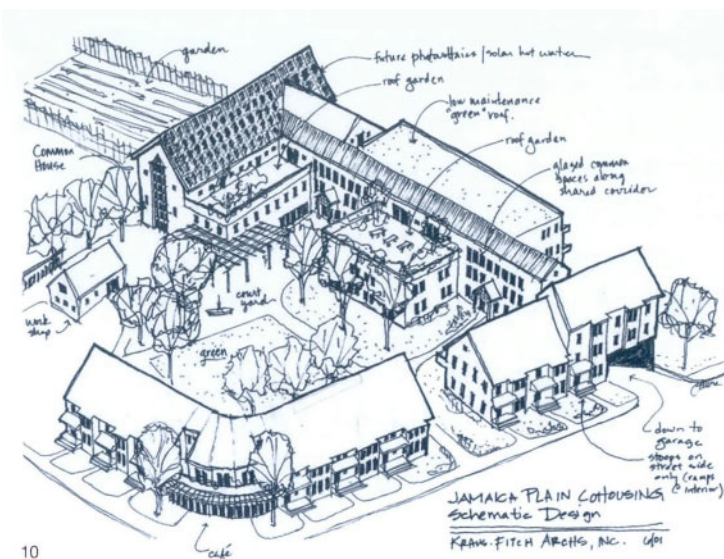 garden
future photovoltaics/solar hot water
roof garden
low maintenance
"green" roof.
roof garden
glazed common
spaces along
shared corridor
Common
House
work
shop
court
yard
green
down to
garage
stoops on
street side
only (ramps
@ interior)
café
JAMAICA PLAIN COHOUSING
Schematic Design
KRAUS-FITCH ARCHS, INC. 6/01
10